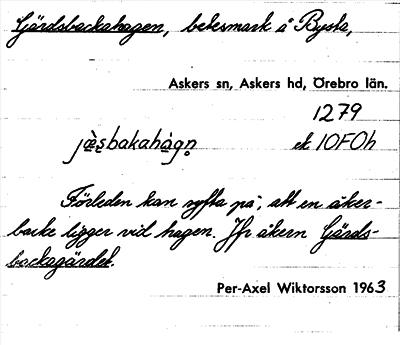 Gärdsbackahagen, betesmark å Bysta,
Askers sn, Askers hd, Örebro län.
1279
jæ̀s̨bakahàgn̥ ek 10F0h
Förleden kan syfta på, att en åker-
backe ligger vid hagen. Jfr åkern Gärds-
backagärdet.
Per-Axel Wiktorsson 1963